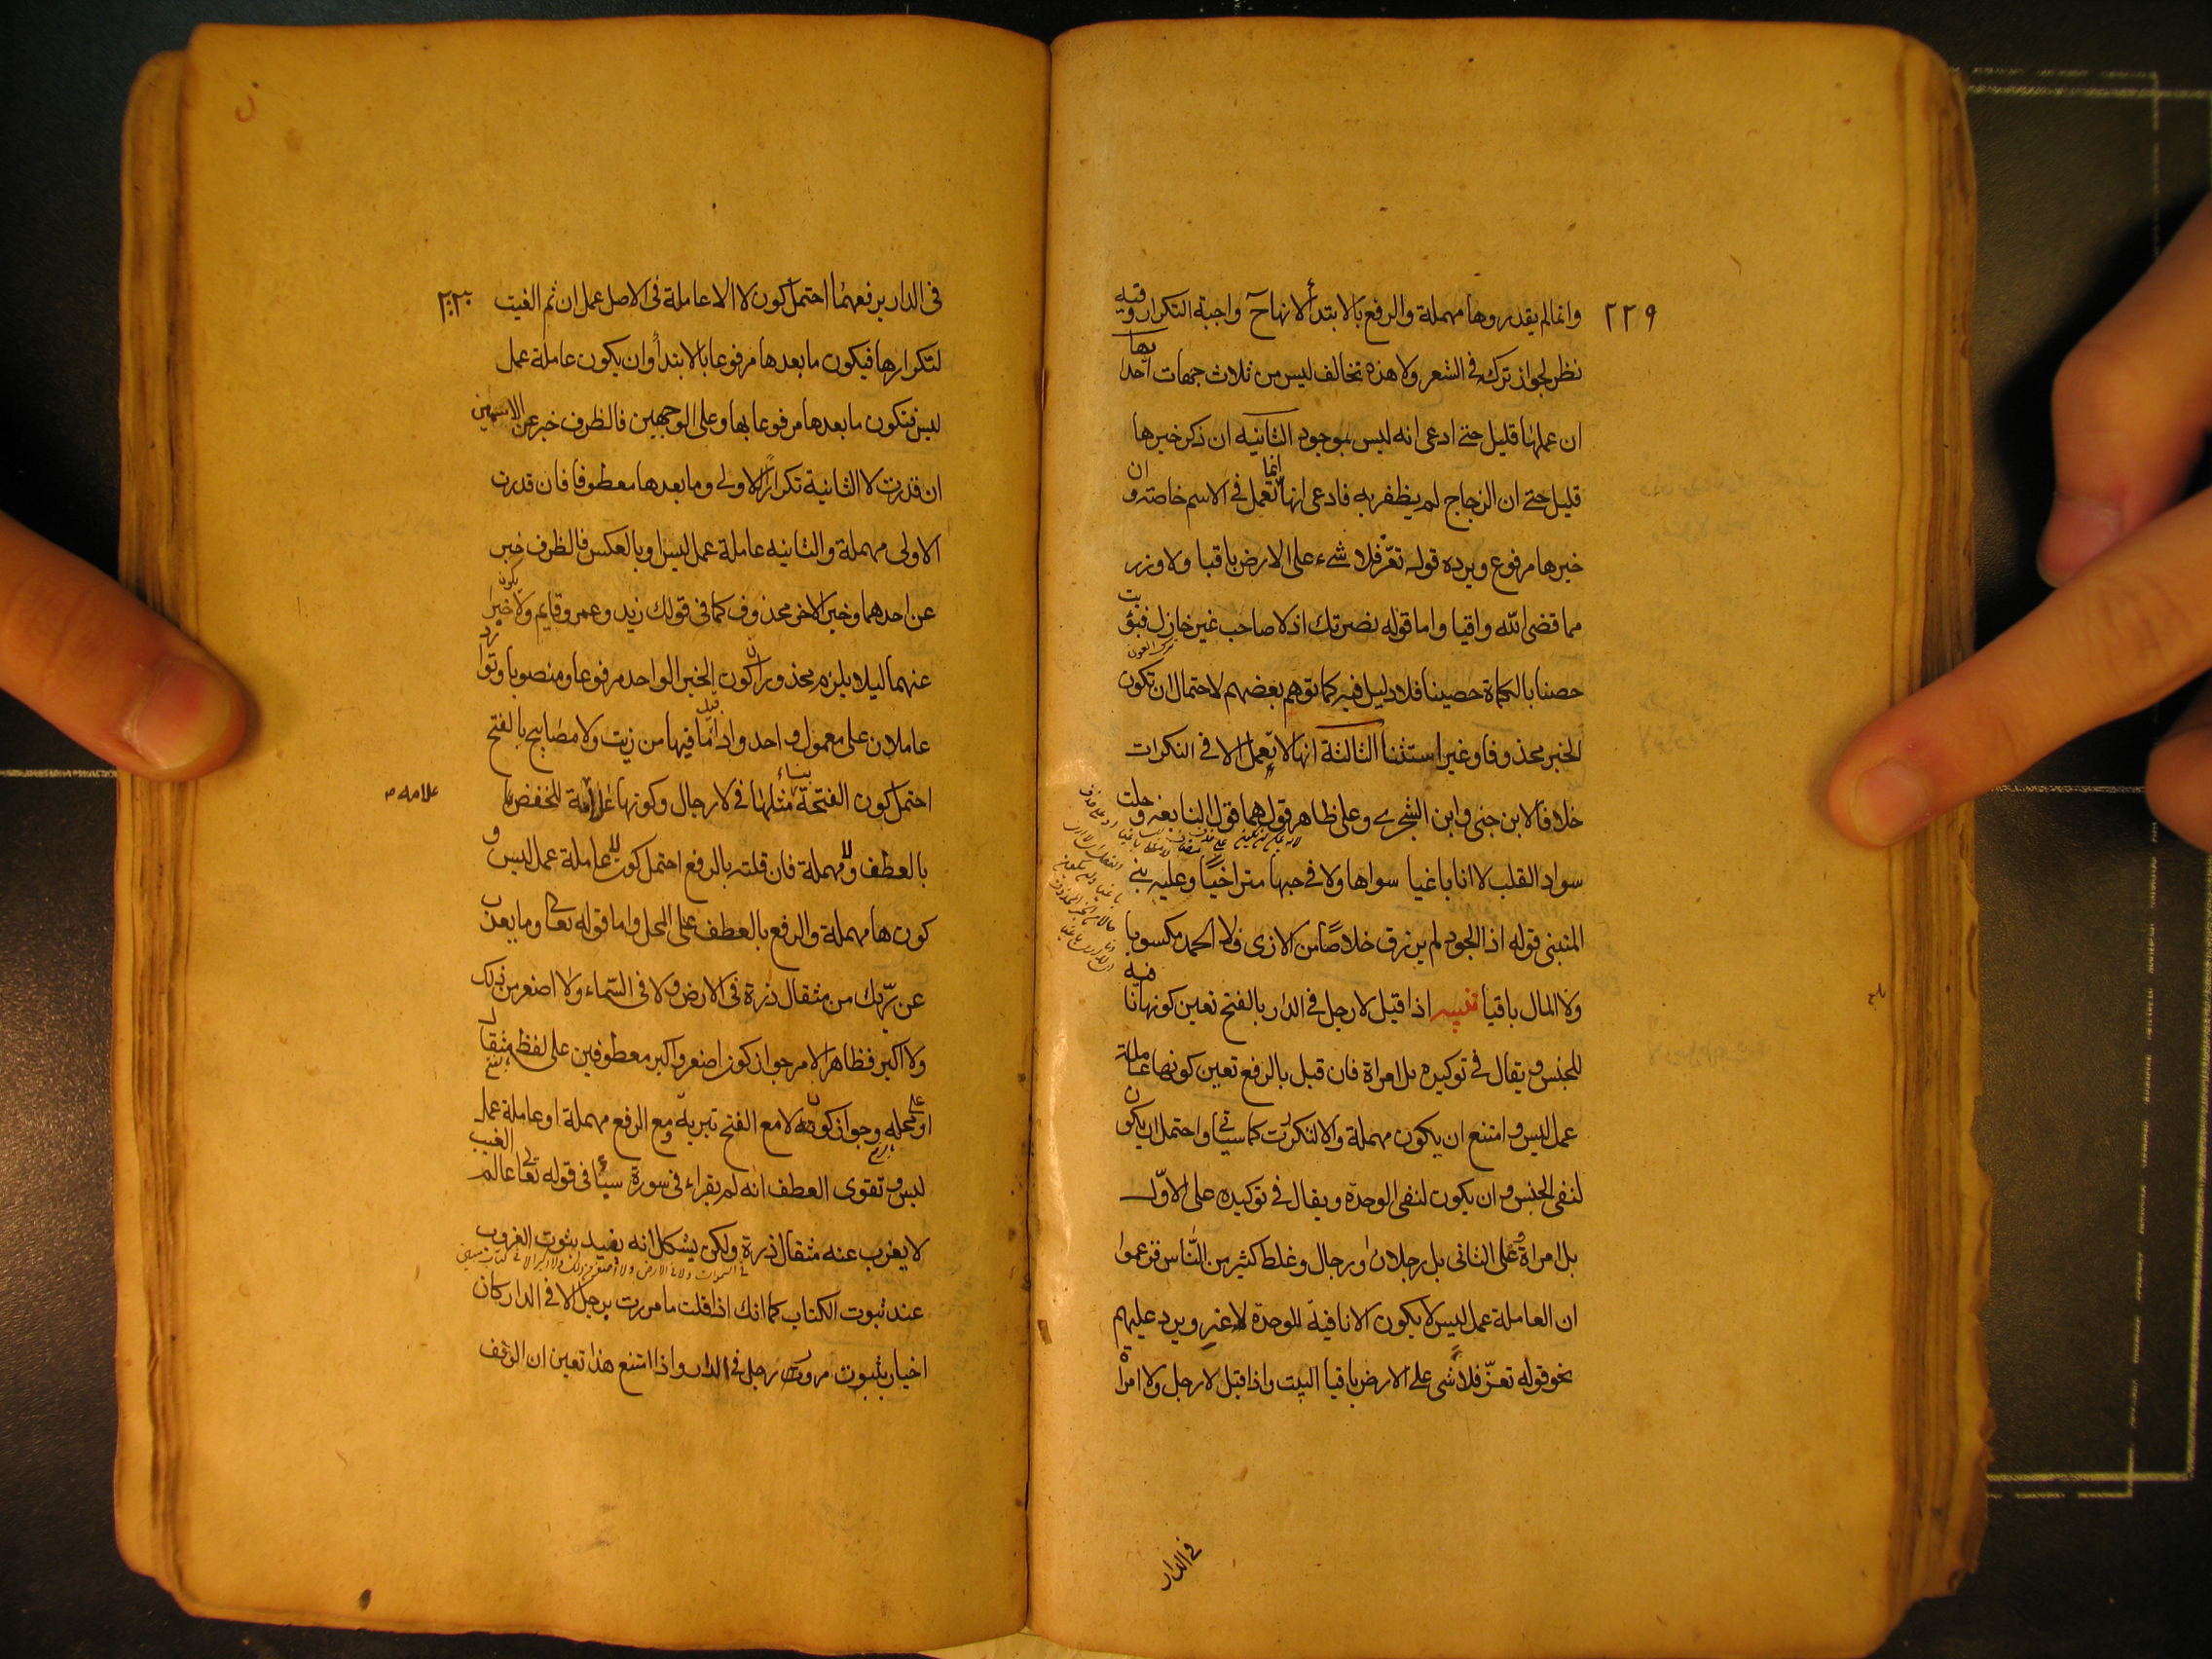 ٢٢٩
وانما لم يقدروها مهملة والرفع بالابتدأ لانها ح واجبة التكرار وفيه
نظر لجواز تركه فى الشعر ولا هذه تخالف ليس من ثلاث جهات احدا
بها
ان عملها قليل حتى ادعى انه ليس بموجود الثانيه ان ذكر خبرها
قليل حتى ان الزجاج لم يظفر به فادعى انها انما تعمل فى الاسم خاصته و ان
خبرها مرفوع ويرده قوله تعزّ فلا شىء على الارض باقيا ولا وزر
مما قضى الله واقيا واما قوله نصرتك اذ لا صاحب غير خازل فبؤ
ئت
حصنا بالكماة حصينا فلا دليل فيه كما توهم بعضهم لاحتمال ان تكون
الخبر محذوفا وغير استثنا الثالثة انها لا تعمل الا فى النكرات
خلافا لابن جنى وابن الشجرى وعلى ظاهر قولهما قول النابغه و حلت
سواد القلب لا انا باغيا سواها ولا فى حبها متراخيًا وعليه بنى
المتنبى قوله اذا الجود لم يرزق خلاصًا من الاذى فلا الحمد مكسوبا
ولا المال باقيا تنبيه اذا قيل لا رجل فى الدار بالفتح تعين كونها نا
فيه
للجنس ويقال فى توكيده بل امراة فان قبل بالرفع تعين كونها عاملة
عمل ليس و امتنع ان يكون مهملة والا لتكررت كما سياتى واحتمل ان يكون
لنفى الجنس وان يكون لنفى الوحدة ويقال فى توكيده على الاوّل
بل امراة وعلى الثانى بل رجلان او رجال وغلط كثير من النّاس فزعموا
ان العاملة عمل ليس لا يكون الا نافية للوحدة لا غير ويرد عليهم
نحو قوله تعزّ فلا شى على الارض باقيا البيت واذا قيل لا رجل ولا امرأ
فى الدار
٢٣٠
فى الدار برفعهما احتمل كون لا الا عاملة فى الاصل عمل ان ثم الغيت
لتكرارها فيكون ما بعدها مرفوعا بالابتدأ وان يكون عاملة عمل
ليس فتكون ما بعدها مرفوعا بها وعلى الوجهين فالظرف خبر عن الاسمين
ان قدرت لا الثانية تكرارًا للاولى وما بعدها معطوفا فان قدرت
الاولى مهملة والثانيه عاملة عمل ليس او بالعكس فالظرف خبر
عن احدهما وخبر الاخر محذوف كما فى قولك زيد وعمرو قايم ولا يكون خبرا
عنهما ليلا يلزم محذوران كون الخبر الواحد مرفوعا ومنصوبا وتوا
رد
عاملان على معمول واحد واذا قيل ما فيها من زيت ولا مصابيح بالفتح
احتمل كون الفتحة بناء مثلها فى لا رجال وكونها علامة للخفض
علامه
بالعطف ولا مهملة فان قلته بالرفع احتمل كون لا عاملة عمل ليس و
كونها مهملة والرفع بالعطف على المحل واما قوله تعالى وما يعزب
عن ربّك من مثقال ذرة فى الارض ولا فى السّماء ولا اصغر من ذلك
ولا اكبر فظاهر الامر جواز كون اصغر واكبر معطوفين على لفظ مثقال
او على محله وجواز كون لا مع الفتح تبرية ومع الرفع مهملة او عاملة عمل
ليس و تقوى العطف انه لم يقراء فى سورة سبأ فى قوله تعالى عالم الغيب
لا يعزب عنه مثقال ذرة ولكن يشكل انه يفيد بثوت العزوب
فى السموات ولا فى الارض ولا اصغر من ذلك ولا اكبر الا فى كتاب مبين
عند ثبوت الكتاب كما انك اذا قلت ما مررت برجل الا فى الدار كان
اخبار بثبوت مرورك برجل فى الدار واذا امتنع هذا تعين ان الوقف